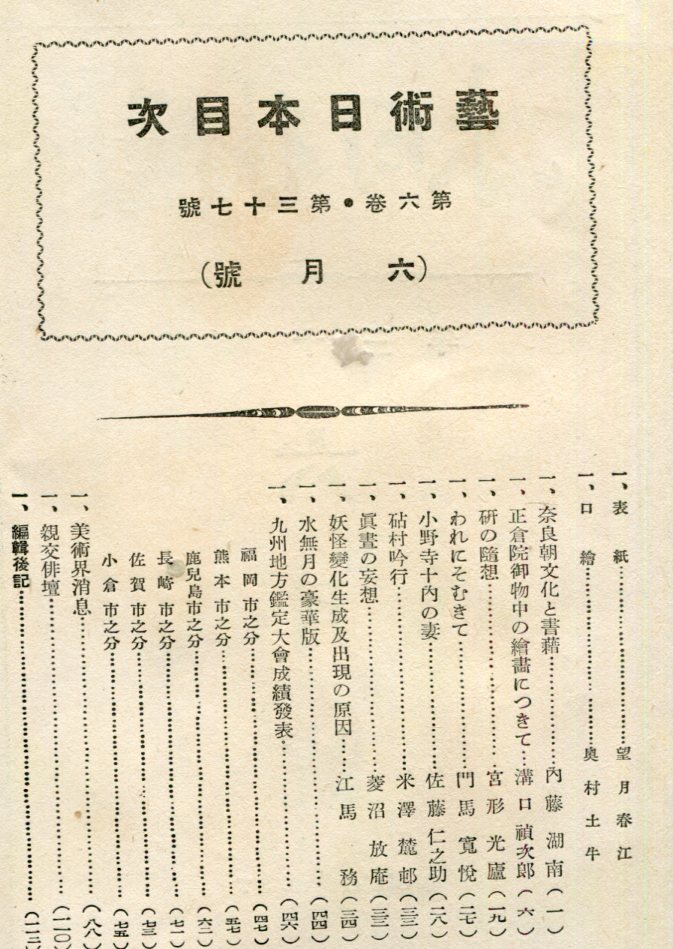 藝術日本目次
第六卷・第三十七號
(六月號)
一、表紙…………望月春江
一、口繪…………奥村土牛
一、奈良朝文化と書藉…………內藤湖南(一)
一、正倉院御物中の繪畫につきて…溝口禎次郎(六)
一、硏の隨想…………宮形光廬(一九)
一、われにそむきて…………門馬寬悅(二七)
一、小野寺十內の妻…………佐藤仁之助(二八)
一、砧村吟行…………米澤麓邨(三三)
一、眞晝の妄想…………菱沼放庵(三三)
一、妖怪變化生成及出現の原因…江馬務(三四)
一、水無月の豪華版…………(四四)
一、九州地方鑑定大會成績發表…………(四六)
福岡市之分…………(四七)
熊本市之分…………(五七)
鹿兒島市之分…………(六二)
長崎市之分…………(七一)
佐賀市之分…………(七三)
小倉市之分…………(七五)
一、美術界消息…………(八八)
一、親交俳壇…………(一一〇)
一、編輯後記…………